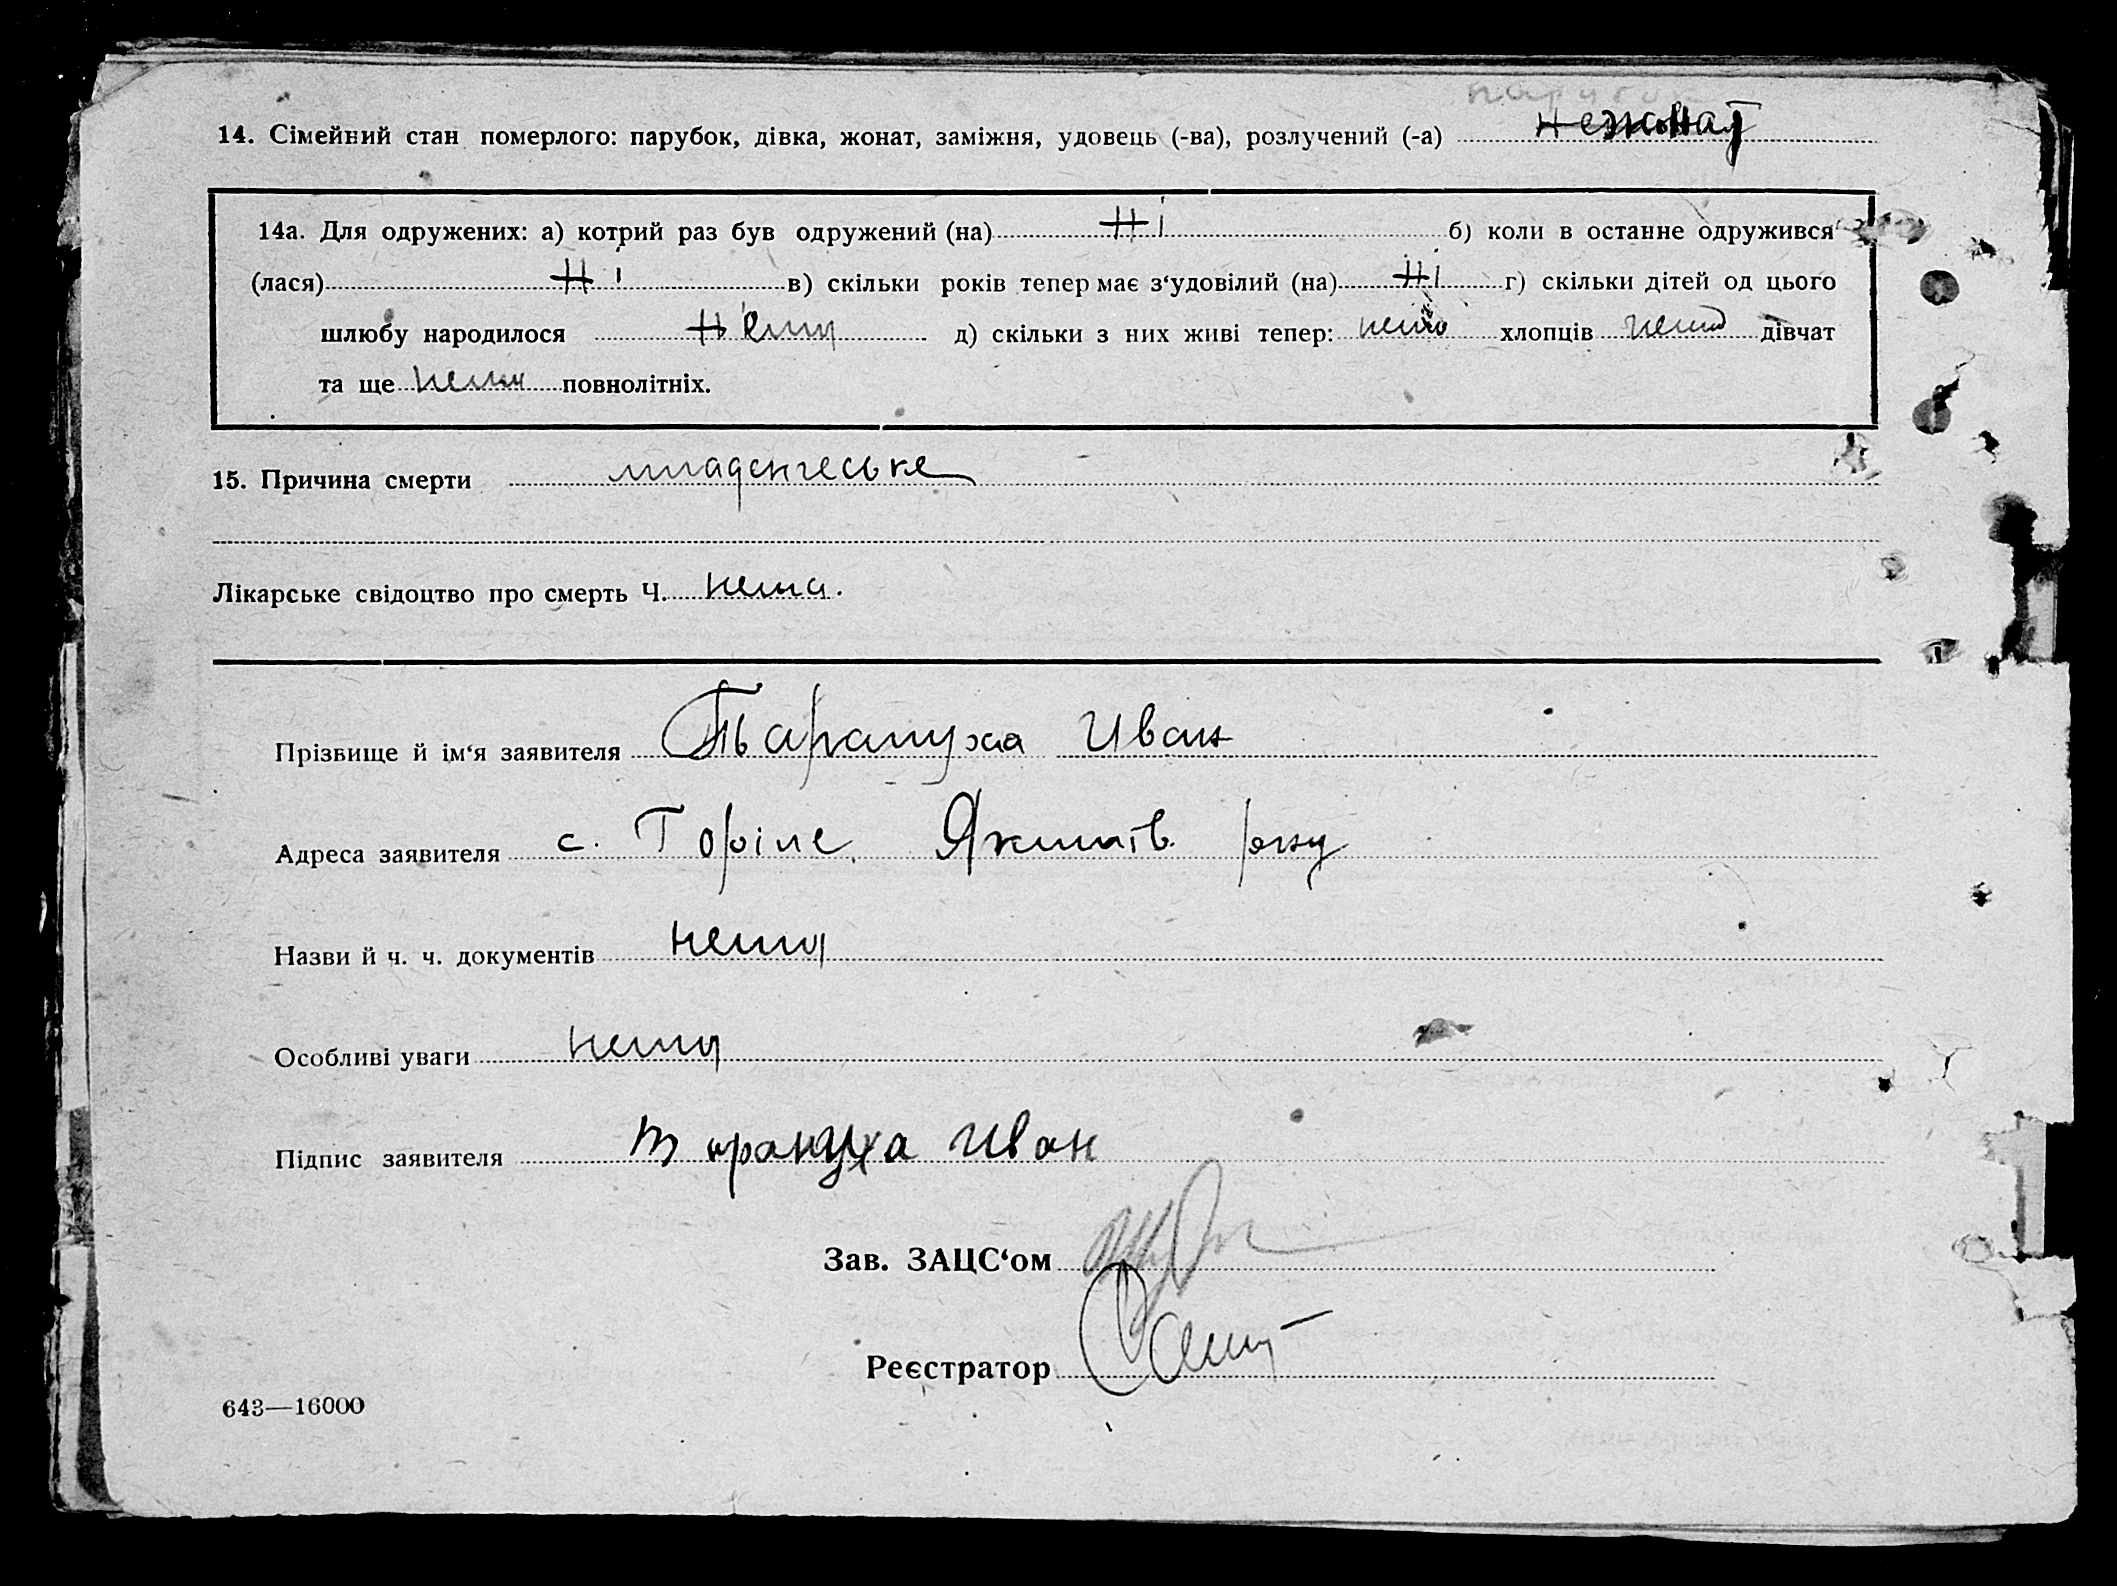 парубок
14. Сімейний стан померлого: парубок, дівка, жонат, заміжня, удовець (-ва), розлучений (-а) нежонат
14а. Для одружених: а) котрий раз був одружений (на) Ні б) коли в останне одружився
(лася) Ні в) скільки років тепер має з‘удовілий (на) Ні г) скільки дітей од цього
шлюбу народилося нема д) скільки з них живі тепер: нема хлопців нема дівчат
та ще нема повнолітніх.
15. Причина смерти младенческе
Лікарське свідоцтво про смерть Ч. нема.
Прізвище й ім‘я заявителя Тарануха Иван
Адреса заявителя с. Горіле Якимів. р-ну
Назви й ч. ч. документів нема
Особливі уваги нема
Підпис заявителя Тарануха Иван
Зав. ЗАЦС‘ом
Реєстратор
643—16000